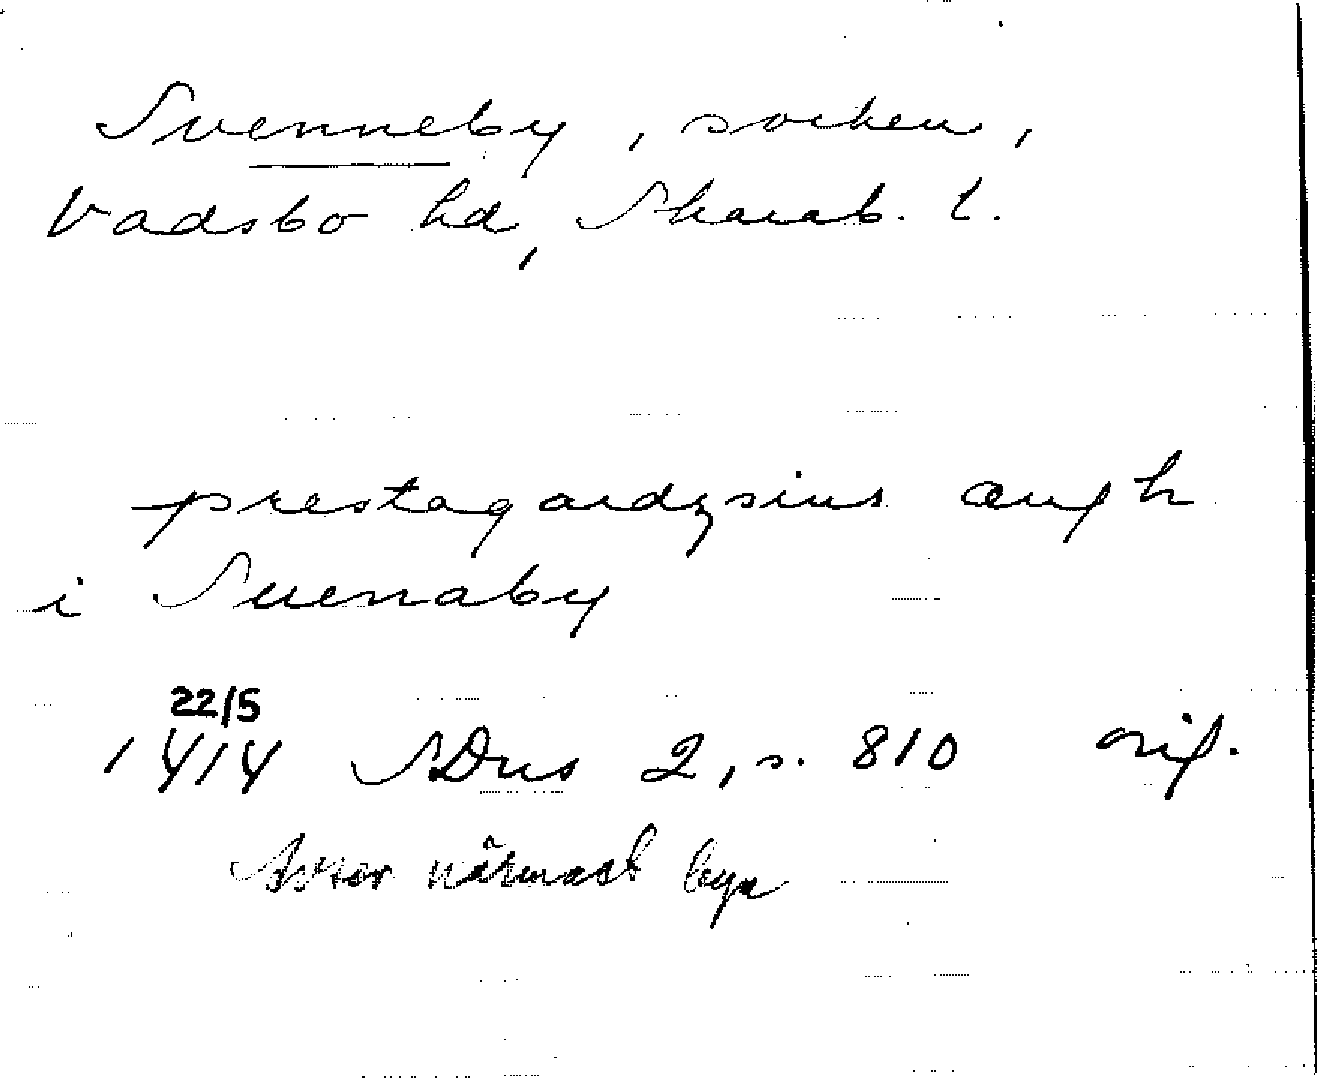 Svenneby, socken,
Vadsbo hd, Skarab. l.
prestagardzsins ængh
i Suenaby
22/5
1414 SDns 2, s. 810 orig.
Avser närmast byn